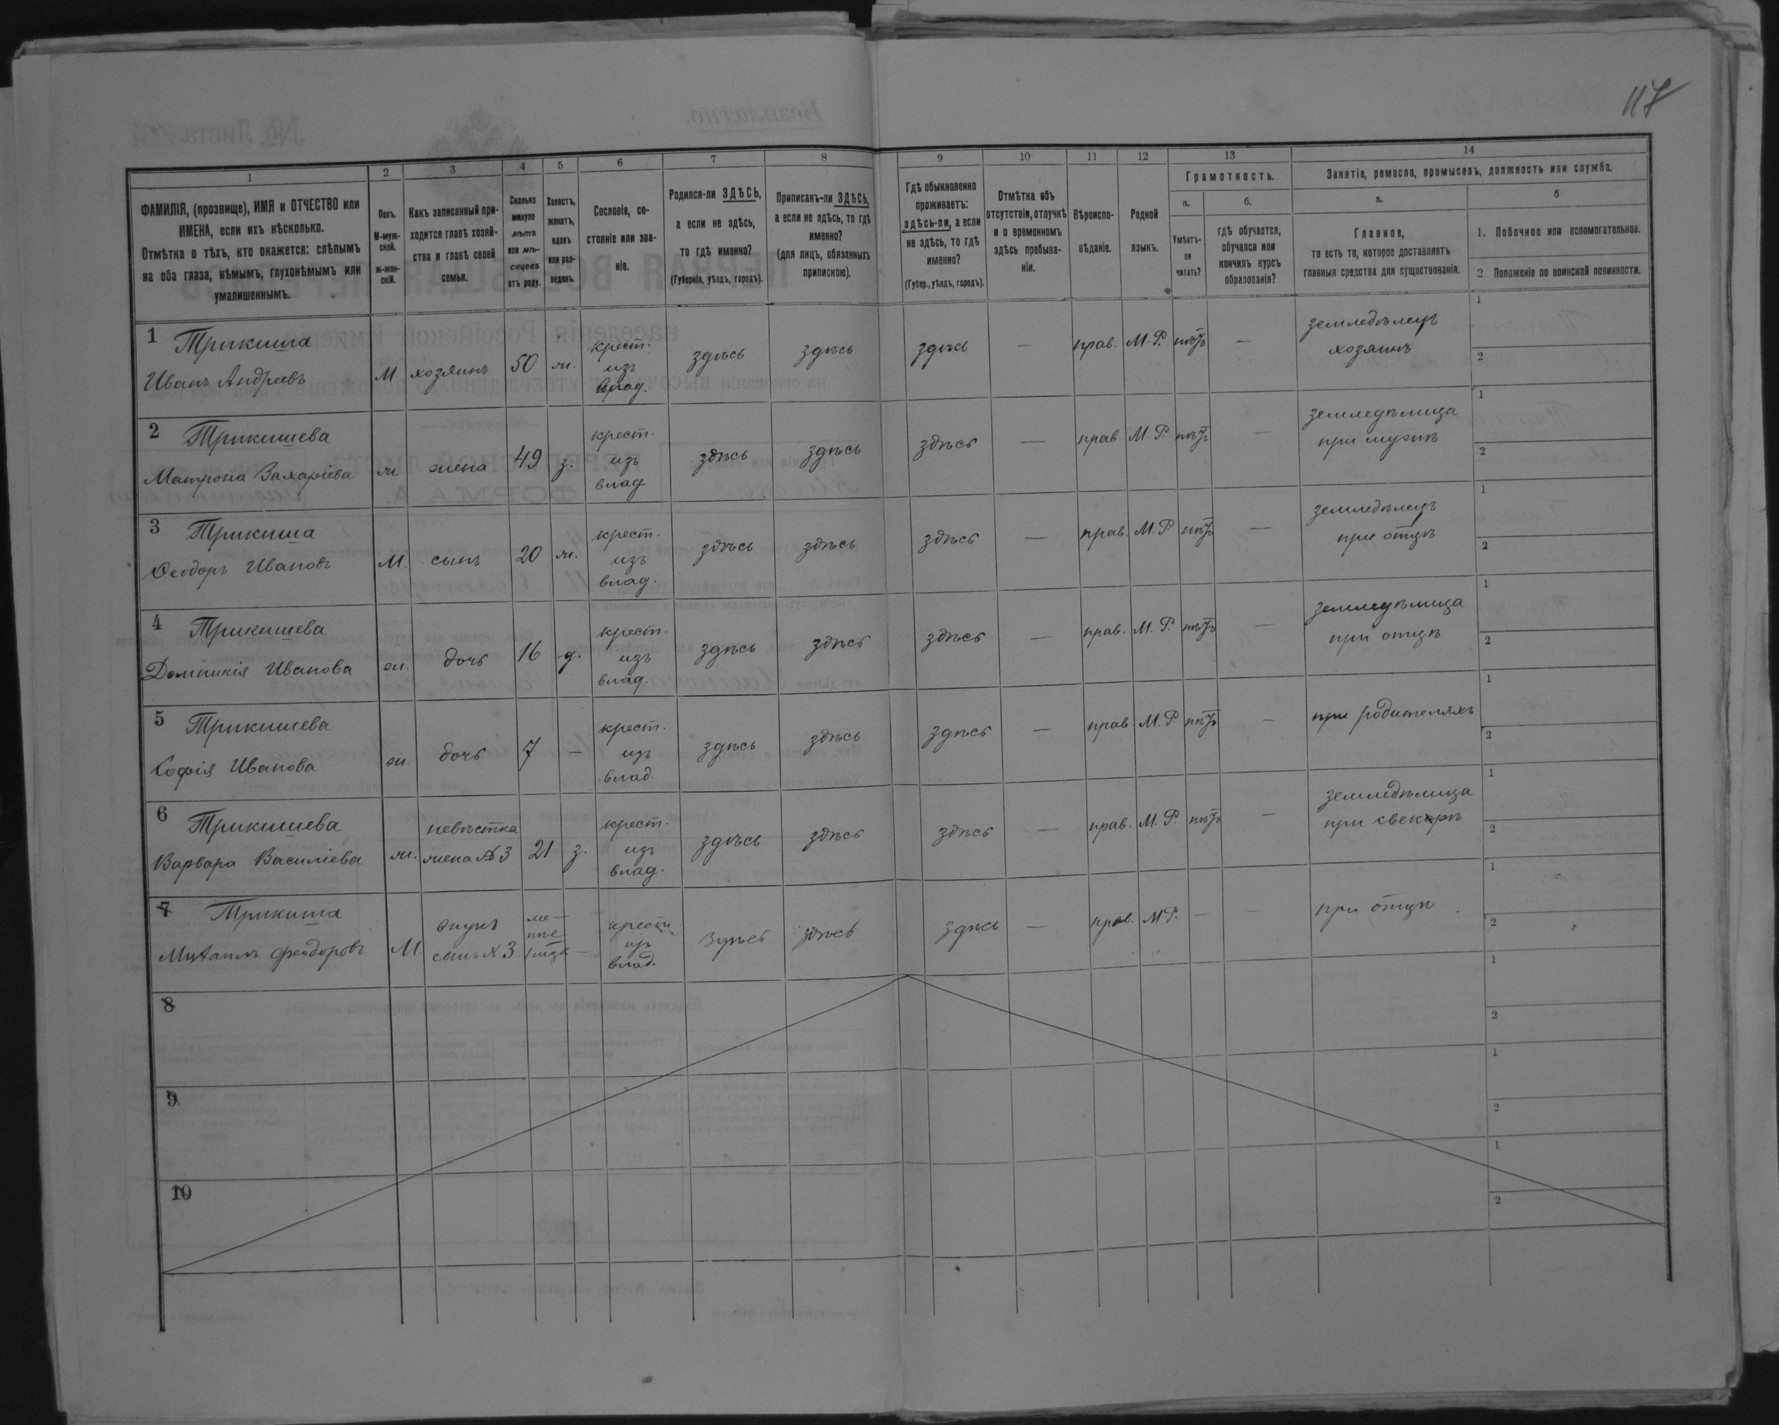 117
1 2 3 4 5 6 7 8 9 10 11 12 13 14
ФАМИЛІЯ, (прозвище), ИМЯ и ОТЧЕСТВО или ИМЕНА, если ихъ нѣсколько.
Отмѣтка о тѣхъ, кто окажется: слѣпымъ на оба глаза, нѣмымъ, глухонѣмымъ или умалишеннымъ.
Полъ.
М-муж-
ской.
ж-жен-
скій.
Какъ записанный при-
ходится главѣ хозяй-
ства и главѣ своей
семьи.
Сколько
минуло
лѣтъ
или мѣ-
сяцевъ
отъ роду.
Холостъ,
женатъ,
вдовъ
или раз-
веденъ.
Сословіе, со-
стояніе или зва-
ніе.
Родился-ли ЗДѢСЬ,
а если не здѣсь,
то гдѣ именно?
(Губернія, уѣздъ, городъ).
Приписанъ-ли ЗДѢСЬ,
а если не здѣсь, то гдѣ
именно?
(для лицъ, обязанныхъ
припискою).
Гдѣ обыкновенно
проживаетъ:
здѣсь-ли, а если
не здѣсь, то гдѣ
именно?
(Губер., уѣздъ, городъ).
Отмѣтка объ
отсутствіи, отлучкѣ
и о временномъ
здѣсь пребыва-
ніи.
Вѣроиспо-
вѣданіе.
Родной
языкъ.
Грамотность.
а.
Умѣетъ-
ли
читать?
б.
гдѣ обучается,
обучался или
кончилъ курсъ
образованія?
Занятіе, ремесло, промыселъ, должность или служба.
а.
Главное,
то есть то, которое доставляетъ
главныя средства для существованія.
б
1. Побочное или вспомогательное.
2. Положеніе по воинской повинности.
1 Трикиша
Иванъ Андреевъ
М хозяинъ 50 ж.
крест.
изъ
влад.
здѣсь здѣсь здѣсь — прав. М.Р. нѣтъ —
земледѣлецъ
хозяинъ
1
2
2 Трикишева
Матрона Захаріева
ж жена 49 з.
крест.
изъ
влад
здѣсь здѣсь здѣсь — прав М.Р. нѣтъ —
земледѣлица
при мужѣ
1
2
3 Трикиша
Феодоръ Ивановъ
М. сынъ 20 ж.
крест.
изъ
влад.
здѣсь здѣсь здѣсь — прав. М.Р. нѣтъ —
земледѣлецъ
при отцѣ
1
2
4 Трикишева
Домникія Иванова
ж. дочь 16 д.
крест.
изъ
влад.
здѣсь здѣсь здѣсь — прав. М.Р. нѣтъ —
земледѣлица
при отцѣ
1
2
5 Трикишева
Софія Иванова
ж. дочь 7 —
крест.
изъ
влад.
здѣсь здѣсь здѣсь — прав М.Р нѣтъ —
при родителяхъ
1
2
6 Трикишева
Варвара Василіева
ж.
невѣстка
жена №3
21 з.
крест.
изъ
влад.
здѣсь здѣсь здѣсь — прав. М.Р. нѣтъ —
земледѣлица
при свекорѣ
1
2
7 Трикиша
Михаилъ Феодоровъ
М
внукъ
сынъ №3
ме-
нѣе
1 года
—
крест.
изъ
влад.
здѣсь здѣсь здѣсь — прав. МР. — —
при отцѣ
1
2
8
1
2
9
1
2
10
1
2